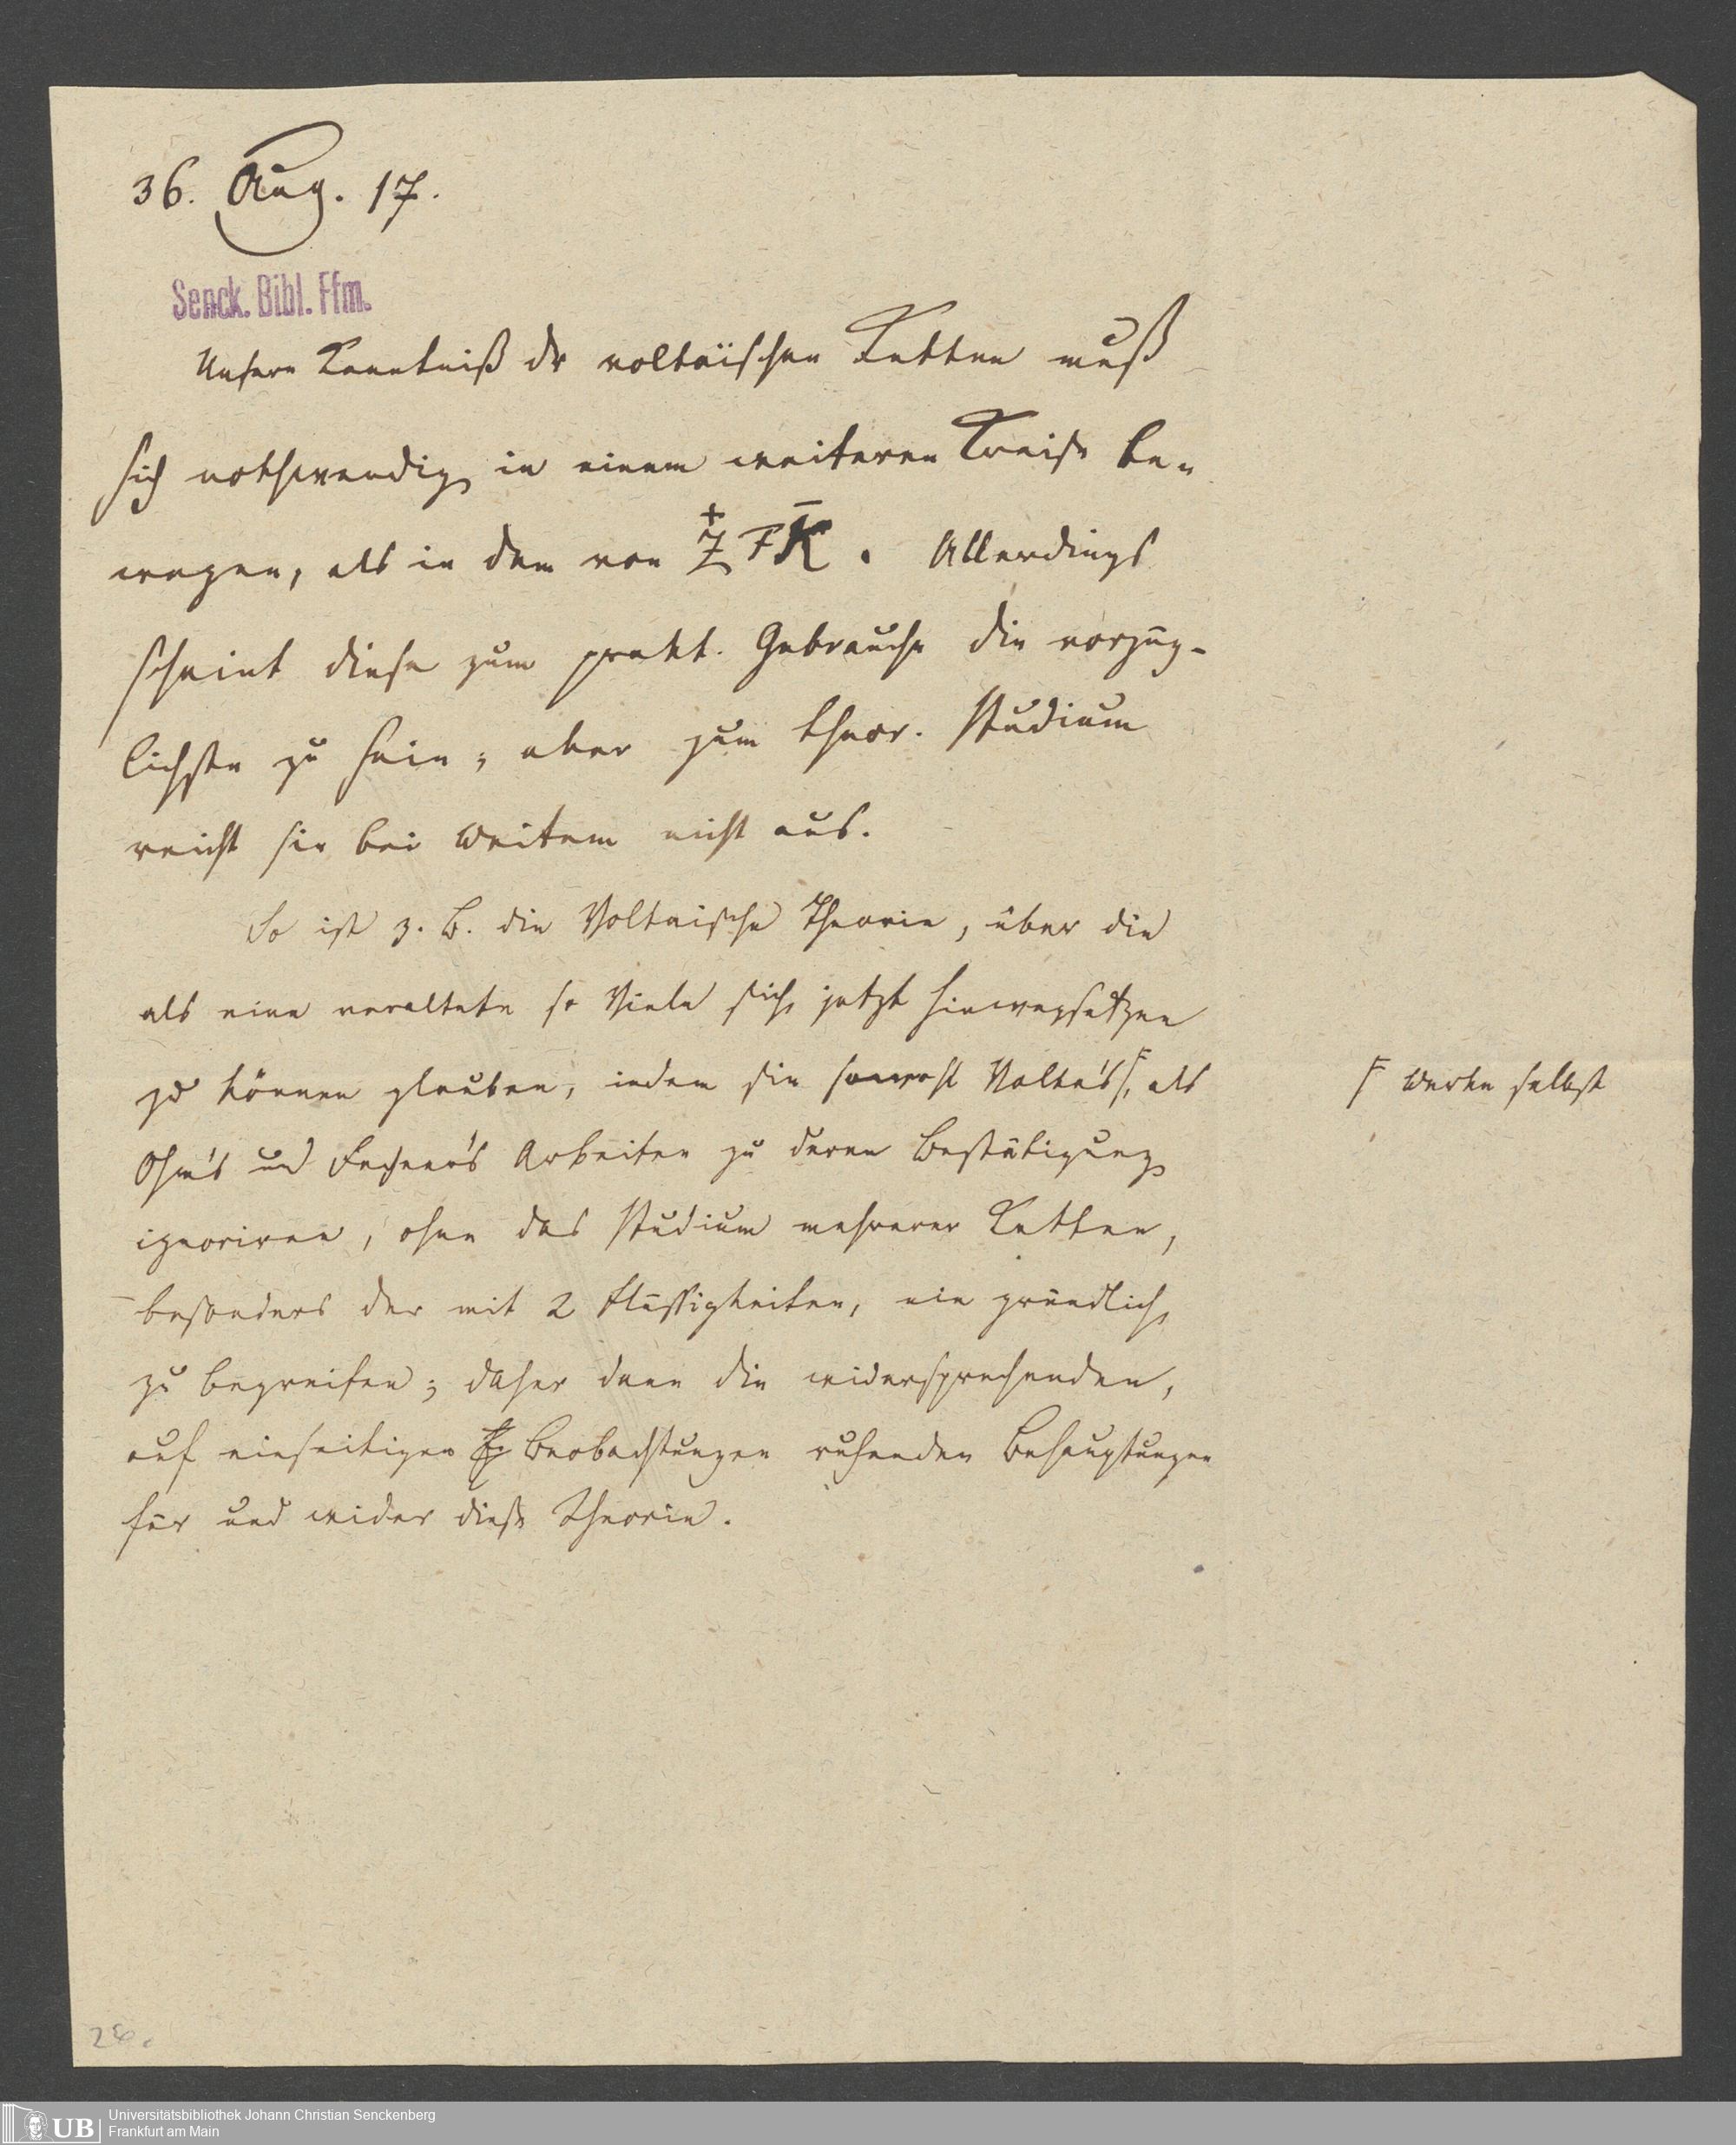 36. Aug. 17.
Senck. Bibl. Ffm.
Unsere Kenntniß dr voltaischen Ketten muß
sich nothwendig in einem weiteren Kreise be-
wegen, als in dem von Z̟⁺ F K̄. Allerdings
scheint diese zum prakt. Gebrauche die vorzüg-
lichste zu sein; aber zum theor. Studium
reicht sie bei Weitem nicht aus.
So ist z. B. die Voltaische Theorie, über die
als eine veraltete so Viele sich jetzt hinwegsetzen
zu können glauben, indem sie sowohl Volta's Ϝ, als
Ϝ Werke selbst
Ohm's und Fechner's Arbeiten zu deren Bestätigung
ignoriren, ohne das Studium mehrerer Ketten,
besonders der mit 2 Flüssigkeiten, nie gründlich
zu begreifen; daher denn die widersprechenden,
auf einseitigen Beobachtungen ruhenden Behauptungen
für und wider diese Theorie.
28.
UB
Universitätsbibliothek Johann Christian Senckenberg
Frankfurt am Main